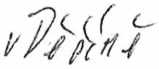 v Děčíně